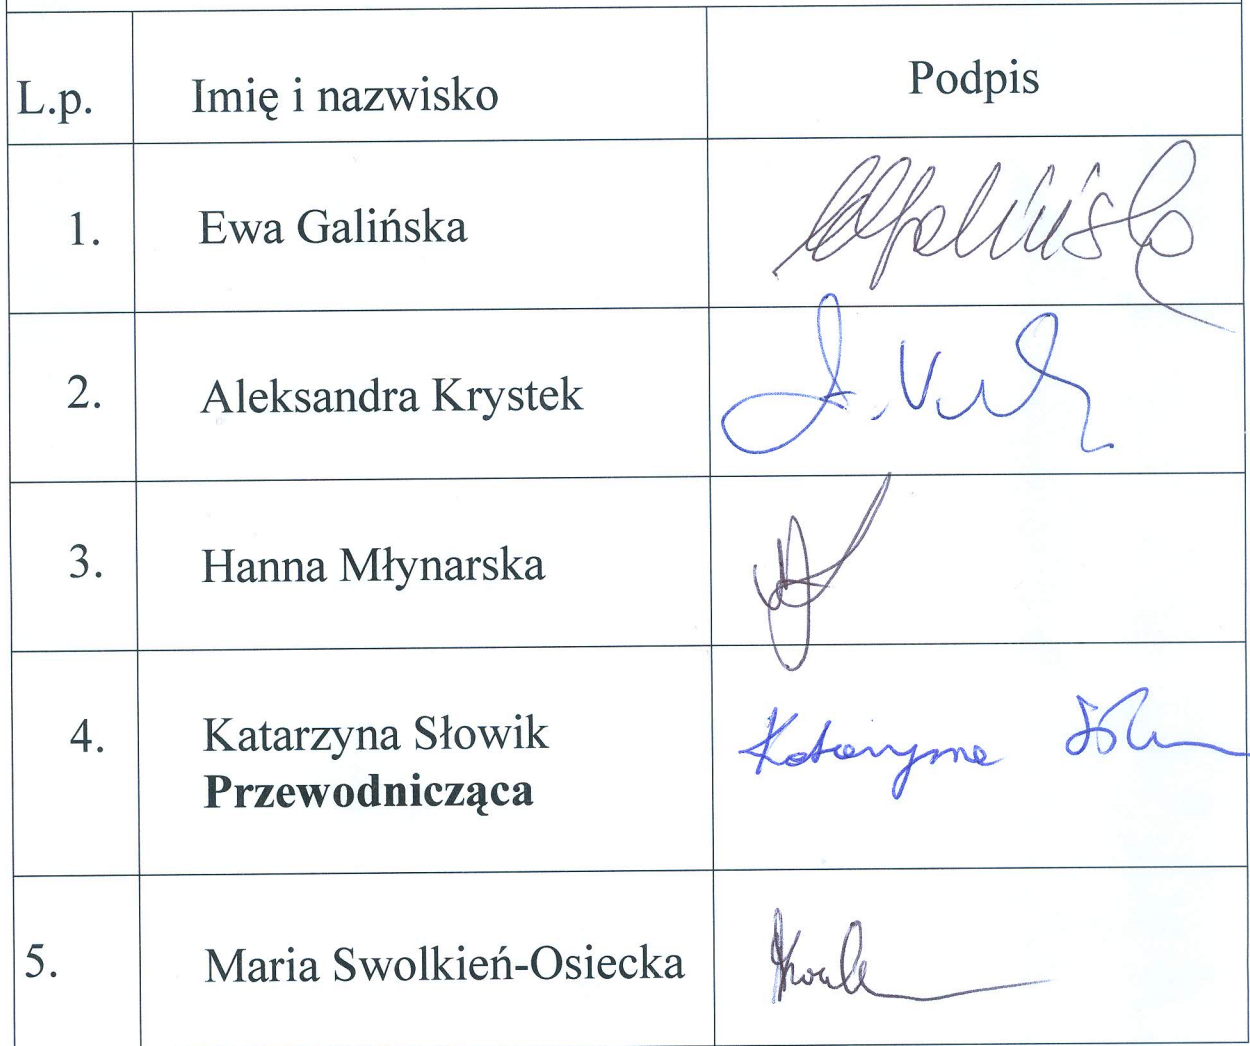 L.p. Imię i nazwisko Podpis
1. Ewa Galińska
2. Aleksandra Krystek
3. Hanna Młynarska
4. Katarzyna Słowik Katarzyna
Przewodnicząca
5. Maria Swolkień-Osiecka